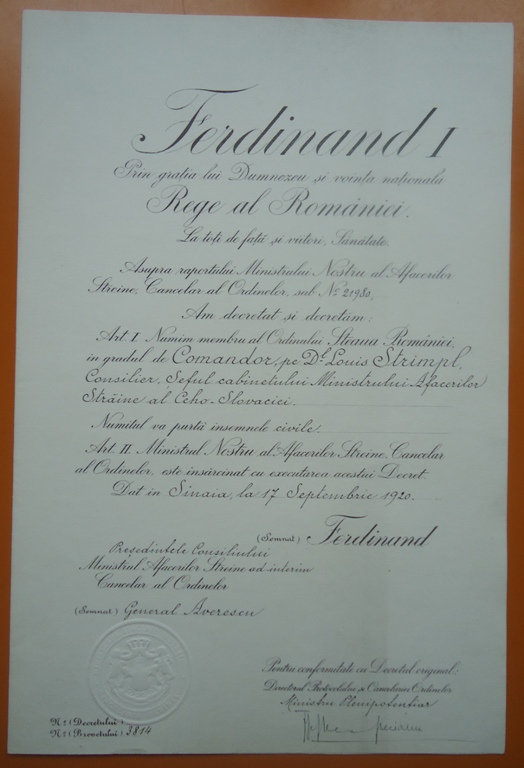 Ferdinand I
Prin grația lui Dumnezeu și voința națională
Rege al României.
La toți de față și viitori, Sănătate.
Asupra raportului Ministrului Nostru al Afacerilor
Streine, Cancelar al Ordinelor, sub No 21980,
Am decretat și decretăm:
Art. I. Numim membru al Ordinului Steaua României,
in gradul de Comandor, pe Dl. Louis Strimpl,
Consilier, Șeful cabinetului Ministrului Afacerilor
Străine al Ceho-Slovaciei.
Numitul va purtà insemnele civile.
Art. II. Ministrul Nostru al Afacerilor Streine, Cancelar
al Ordinelor, este însărcinat cu executarea acestui Decret.
Dat in Sinaia, la 17 Septembrie 1920.
(Semnat) Ferdinand
Președintele Consiliului
Ministrul Afacerilor Streine ad interim
Cancelar al Ordinelor
(Semnat) General Averescu
Pentru conformitate cu Decretul original:
Directorul Protocolului și Cancelariei Ordinelor
Ministru Plenipotențiar
No. (Decretului)
No. (Brevetului) 3814